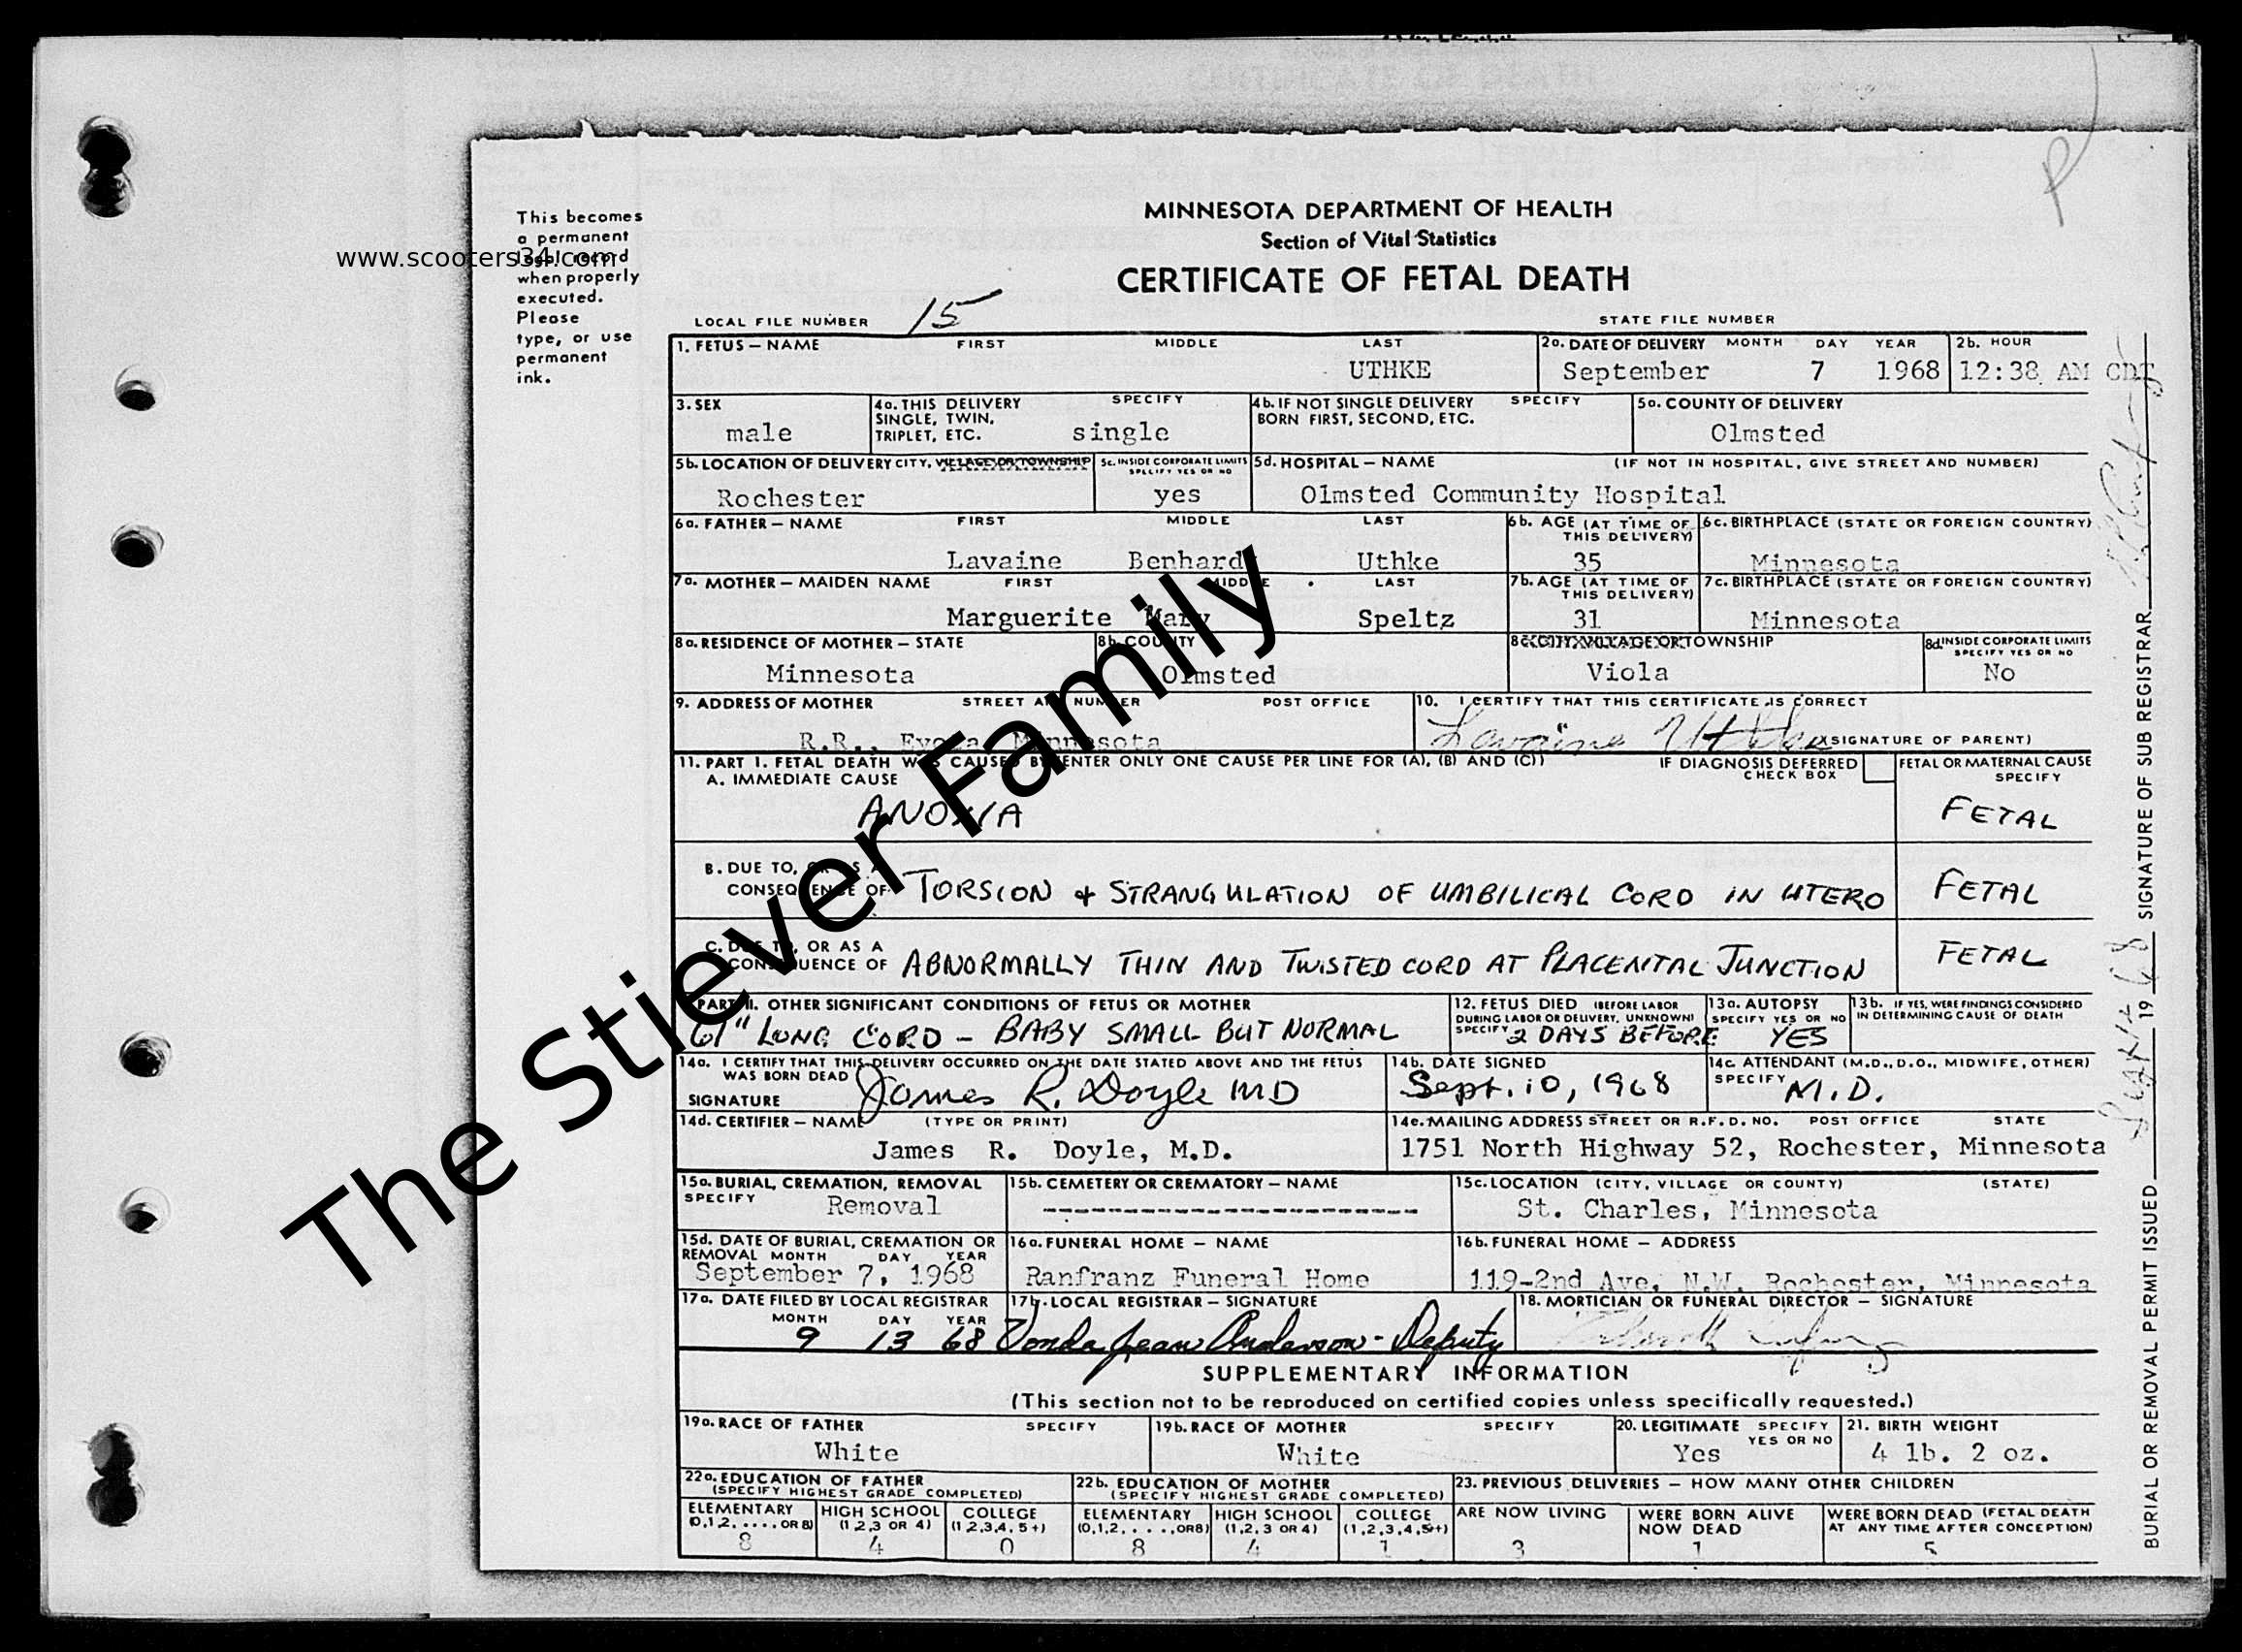 MINNESOTA DEPARTMENT OF HEALTH
Section of Vital Statistics
CERTIFICATE OF FETAL DEATH
This becomes
a permanent
legal record
when properly
executed.
Please
type, or use
permanent
ink.
www.scooters34.com
The Stiever Family
LOCAL FILE NUMBER 15 STATE FILE NUMBER
1. FETUS — NAME FIRST MIDDLE LAST 2a. DATE OF DELIVERY MONTH DAY YEAR 2b. HOUR
UTHKE September 7 1968 12:38 AM CDT
3. SEX 4a. THIS DELIVERY SPECIFY 4b. IF NOT SINGLE DELIVERY SPECIFY 5a. COUNTY OF DELIVERY
SINGLE, TWIN, BORN FIRST, SECOND, ETC.
male TRIPLET, ETC. single Olmsted
5b. LOCATION OF DELIVERY CITY, VILLAGE OR TOWNSHIP 5c. INSIDE CORPORATE LIMITS 5d. HOSPITAL — NAME (IF NOT IN HOSPITAL, GIVE STREET AND NUMBER)
SPECIFY YES OR NO
Rochester yes Olmsted Community Hospital
6a. FATHER — NAME FIRST MIDDLE LAST 6b. AGE (AT TIME OF 6c. BIRTHPLACE (STATE OR FOREIGN COUNTRY)
THIS DELIVERY)
Lavaine Benhard Uthke 35 Minnesota
7a. MOTHER — MAIDEN NAME FIRST MIDDLE LAST 7b. AGE (AT TIME OF 7c. BIRTHPLACE (STATE OR FOREIGN COUNTRY)
THIS DELIVERY)
Marguerite Mary Speltz 31 Minnesota
8a. RESIDENCE OF MOTHER — STATE 8b. COUNTY 8c. CITY, VILLAGE OR TOWNSHIP 8d. INSIDE CORPORATE LIMITS
SPECIFY YES OR NO
Minnesota Olmsted Viola No
9. ADDRESS OF MOTHER STREET AND NUMBER POST OFFICE 10. I CERTIFY THAT THIS CERTIFICATE IS CORRECT
R.R., Eyota, Minnesota Lavaine Uthke (SIGNATURE OF PARENT)
11. PART I. FETAL DEATH WAS CAUSED BY (ENTER ONLY ONE CAUSE PER LINE FOR (A), (B) AND (C)) IF DIAGNOSIS DEFERRED FETAL OR MATERNAL CAUSE
A. IMMEDIATE CAUSE CHECK BOX SPECIFY
ANOXIA FETAL
B. DUE TO, OR AS A
CONSEQUENCE OF: TORSION & STRANGULATION OF UMBILICAL CORD IN UTERO FETAL
C. DUE TO, OR AS A
CONSEQUENCE OF ABNORMALLY THIN AND TWISTED CORD AT PLACENTAL JUNCTION FETAL
PART II. OTHER SIGNIFICANT CONDITIONS OF FETUS OR MOTHER 12. FETUS DIED (BEFORE LABOR 13a. AUTOPSY 13b. IF YES, WERE FINDINGS CONSIDERED
DURING LABOR OR DELIVERY, UNKNOWN) SPECIFY YES OR NO IN DETERMINING CAUSE OF DEATH
61" LONG CORD - BABY SMALL BUT NORMAL SPECIFY 2 DAYS BEFORE YES
14a. I CERTIFY THAT THIS DELIVERY OCCURRED ON THE DATE STATED ABOVE AND THE FETUS 14b. DATE SIGNED 14c. ATTENDANT (M.D., D.O., MIDWIFE, OTHER)
WAS BORN DEAD SPECIFY
SIGNATURE James R. Doyle MD Sept. 10, 1968 M.D.
14d. CERTIFIER — NAME (TYPE OR PRINT) 14e. MAILING ADDRESS STREET OR R.F.D. NO. POST OFFICE STATE
James R. Doyle, M.D. 1751 North Highway 52, Rochester, Minnesota
15a. BURIAL, CREMATION, REMOVAL 15b. CEMETERY OR CREMATORY — NAME 15c. LOCATION (CITY, VILLAGE OR COUNTY) (STATE)
SPECIFY Removal ---------------------- St. Charles, Minnesota
15d. DATE OF BURIAL, CREMATION OR 16a. FUNERAL HOME — NAME 16b. FUNERAL HOME — ADDRESS
REMOVAL MONTH DAY YEAR
September 7, 1968 Ranfranz Funeral Home 119-2nd Ave. N.W. Rochester, Minnesota
17a. DATE FILED BY LOCAL REGISTRAR 17b. LOCAL REGISTRAR — SIGNATURE 18. MORTICIAN OR FUNERAL DIRECTOR — SIGNATURE
MONTH DAY YEAR
9 13 68 Vonda Jean Anderson - Deputy
SUPPLEMENTARY INFORMATION
(This section not to be reproduced on certified copies unless specifically requested.)
19a. RACE OF FATHER SPECIFY 19b. RACE OF MOTHER SPECIFY 20. LEGITIMATE SPECIFY 21. BIRTH WEIGHT
YES OR NO
White White Yes 4 lb. 2 oz.
22a. EDUCATION OF FATHER 22b. EDUCATION OF MOTHER 23. PREVIOUS DELIVERIES — HOW MANY OTHER CHILDREN
(SPECIFY HIGHEST GRADE COMPLETED) (SPECIFY HIGHEST GRADE COMPLETED)
ELEMENTARY HIGH SCHOOL COLLEGE ELEMENTARY HIGH SCHOOL COLLEGE ARE NOW LIVING WERE BORN ALIVE WERE BORN DEAD (FETAL DEATH
(0,1,2, . . . . OR 8) (1,2,3 OR 4) (1,2,3,4,5+) (0,1,2, . . . ., OR 8) (1,2,3 OR 4) (1,2,3,4,5+) NOW DEAD AT ANY TIME AFTER CONCEPTION)
8 4 0 8 4 1 3 1 5
BURIAL OR REMOVAL PERMIT ISSUED 19 68 SIGNATURE OF SUB REGISTRAR